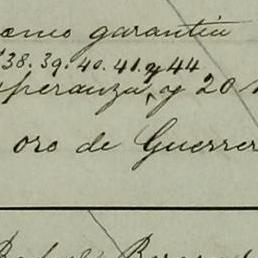 como garantia
38. 39. 40. 41. y 44
esperanza, y 20
oro de Guerrer